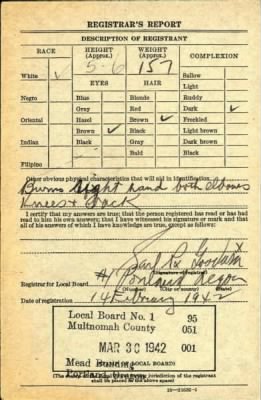 REGISTRAR'S REPORT
DESCRIPTION OF REGISTRANT
RACE HEIGHT (Approx.) WEIGHT (Approx.) COMPLEXION
5-6 157
White ✓ Sallow
EYES HAIR Light
Negro Blue Blonde Ruddy
Gray Red Dark ✓
Oriental Hazel Black Freckled
Brown ✓ Brown ✓ Light brown
Indian Black Gray Dark brown
Bald Black
Filipino
Other obvious physical characteristics that will aid in identification
Burns Right hand both elbows
Knees & back
I certify that my answers are true; that the person registered has read or has read
to him his own answers; that I have witnessed his signature or mark and that
all of his answers of which I have knowledge are true, except as follows:
(Signature of registrar)
Registrar for Local Board #1 Portland Oregon
(Number) (City or county) (State)
Date of registration 14 February 1942
Local Board No. 1 95
Multnomah County 051
MAR 30 1942 001
Mead Building
Portland, Oregon
(STAMP OF LOCAL BOARD)
shall be placed in the above space)